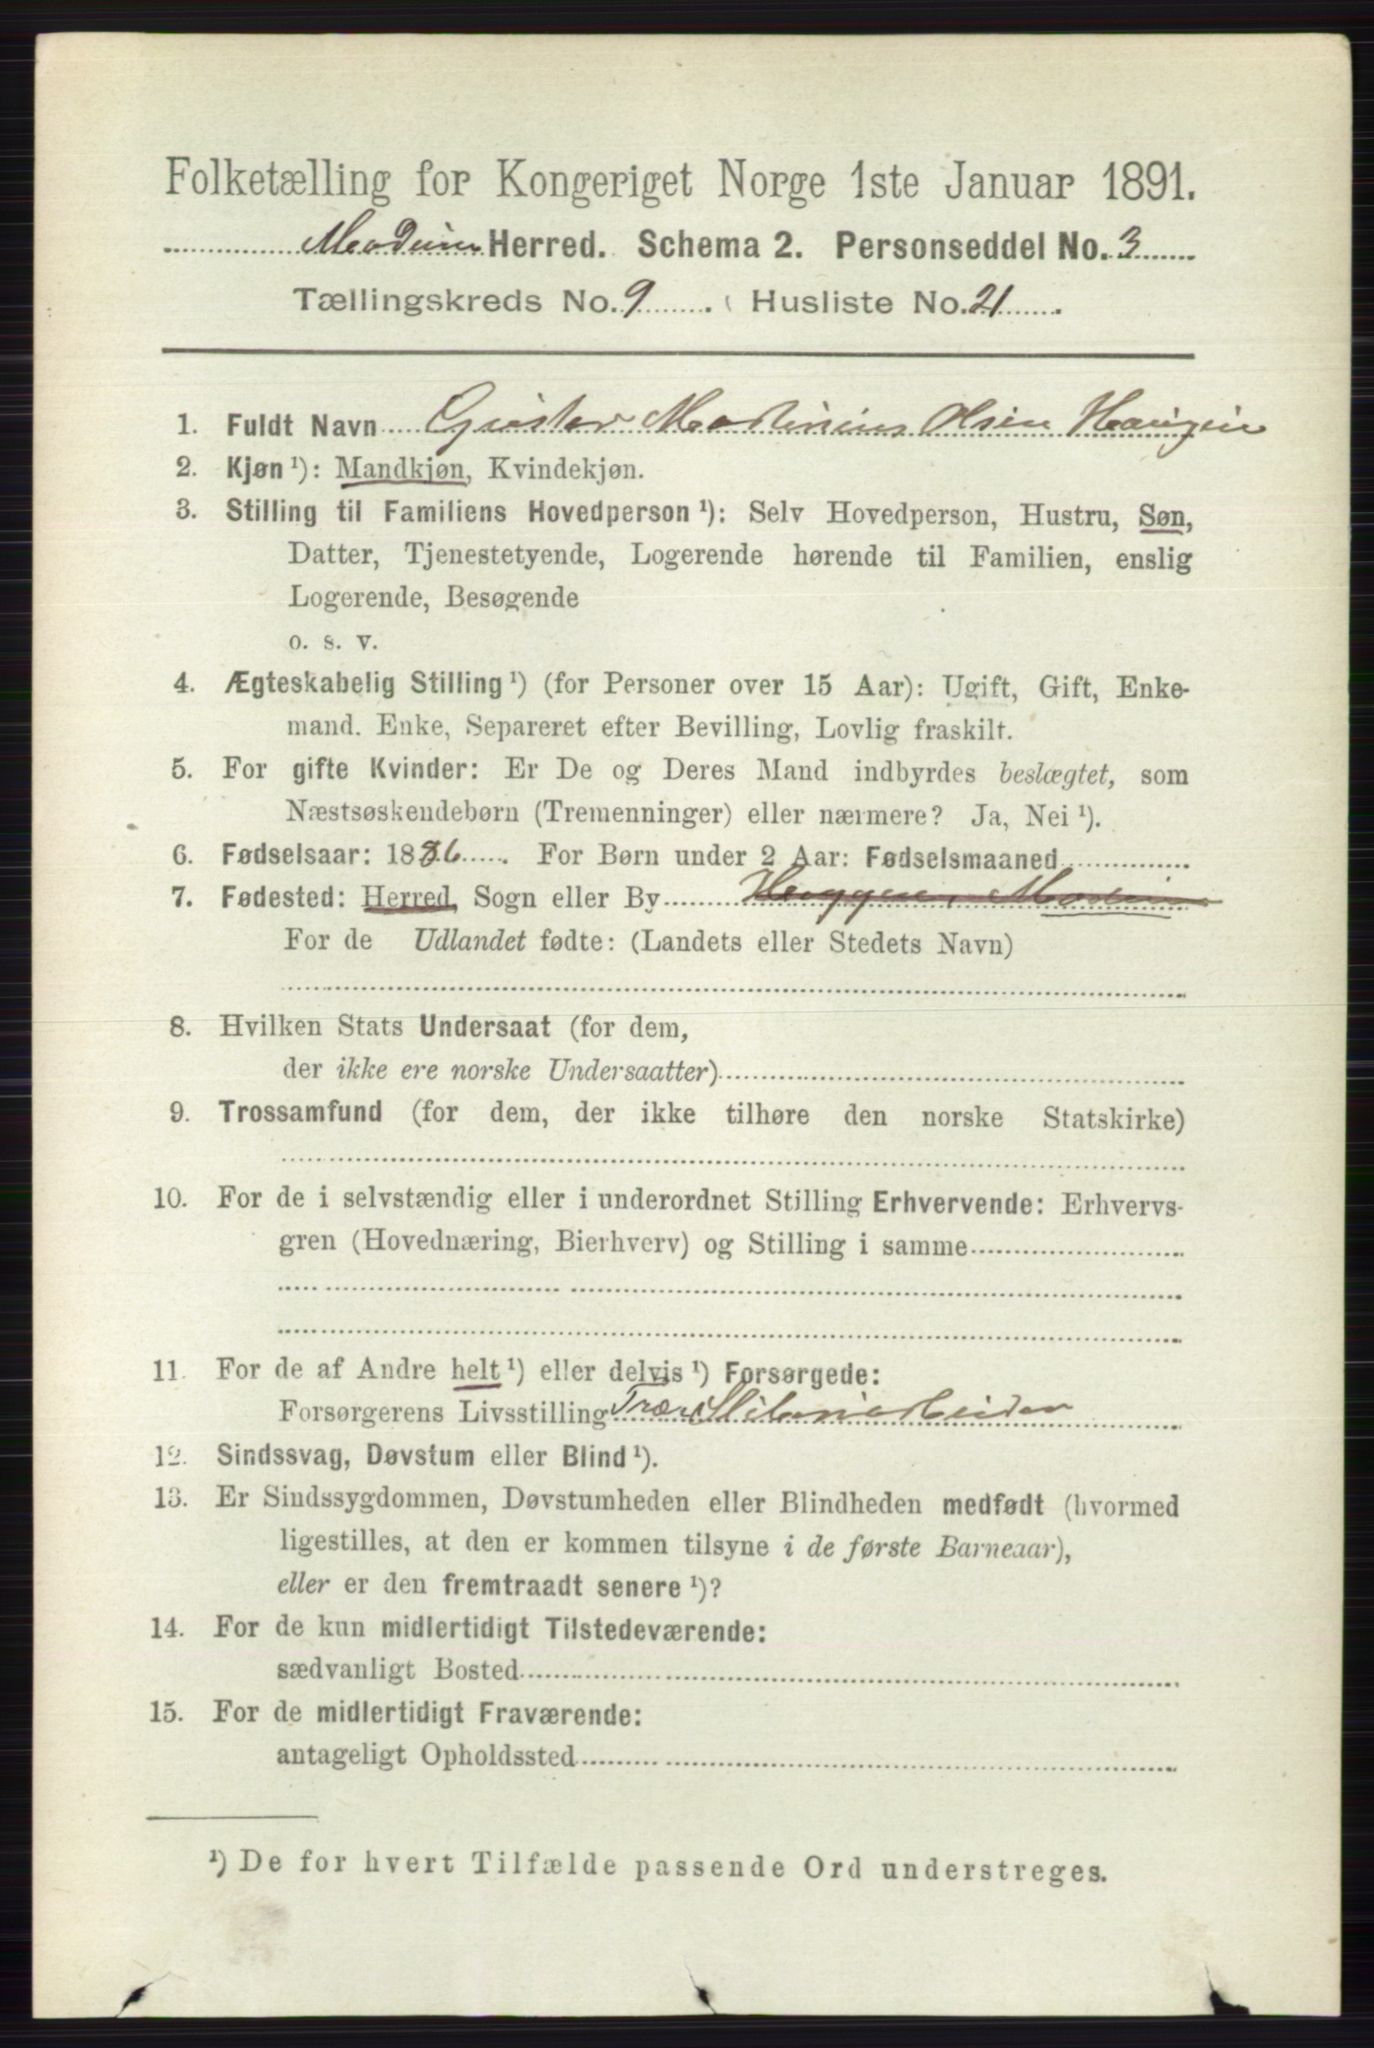 Folketælling for Kongeriget Norge 1ste Januar 1891.
Modum Herred. Schema 2. Personseddel No. 3
Tællingskreds No. 9. Husliste No. 21.
1. Fuldt Navn Gustav Martinius Olsen Haugen
2. Kjøn ¹): Mandkjøn, Kvindekjøn.
3. Stilling til Familiens Hovedperson ¹): Selv Hovedperson, Hustru, Søn,
Datter, Tjenestetyende, Logerende hørende til Familien, enslig
Logerende, Besøgende
o. s. v.
4. Ægteskabelig Stilling ¹) (for Personer over 15 Aar): Ugift, Gift, Enke-
mand. Enke, Separeret efter Bevilling, Lovlig fraskilt.
5. For gifte Kvinder: Er De og Deres Mand indbyrdes beslægtet, som
Næstsøskendebørn (Tremenninger) eller nærmere? Ja, Nei ¹).
6. Fødselsaar: 1886. For Børn under 2 Aar: Fødselsmaaned
7. Fødested: Herred, Sogn eller By Heggen, Modum
For de Udlandet fødte: (Landets eller Stedets Navn)
8. Hvilken Stats Undersaat (for dem,
der ikke ere norske Undersaatter)
9. Trossamfund (for dem, der ikke tilhøre den norske Statskirke)
10. For de i selvstændig eller i underordnet Stilling Erhvervende: Erhvervs-
gren (Hovednæring, Bierhverv) og Stilling i samme
11. For de af Andre helt ¹) eller delvis ¹) Forsørgede:
Forsørgerens Livsstilling Træsliberiarbeider
12. Sindssvag, Døvstum eller Blind ¹).
13. Er Sindssygdommen, Døvstumheden eller Blindheden medfødt (hvormed
ligestilles, at den er kommen tilsyne i de første Barneaar),
eller er den fremtraadt senere ¹)?
14. For de kun midlertidigt Tilstedeværende:
sædvanligt Bosted
15. For de midlertidigt Fraværende:
antageligt Opholdssted
¹) De for hvert Tilfælde passende Ord understreges.